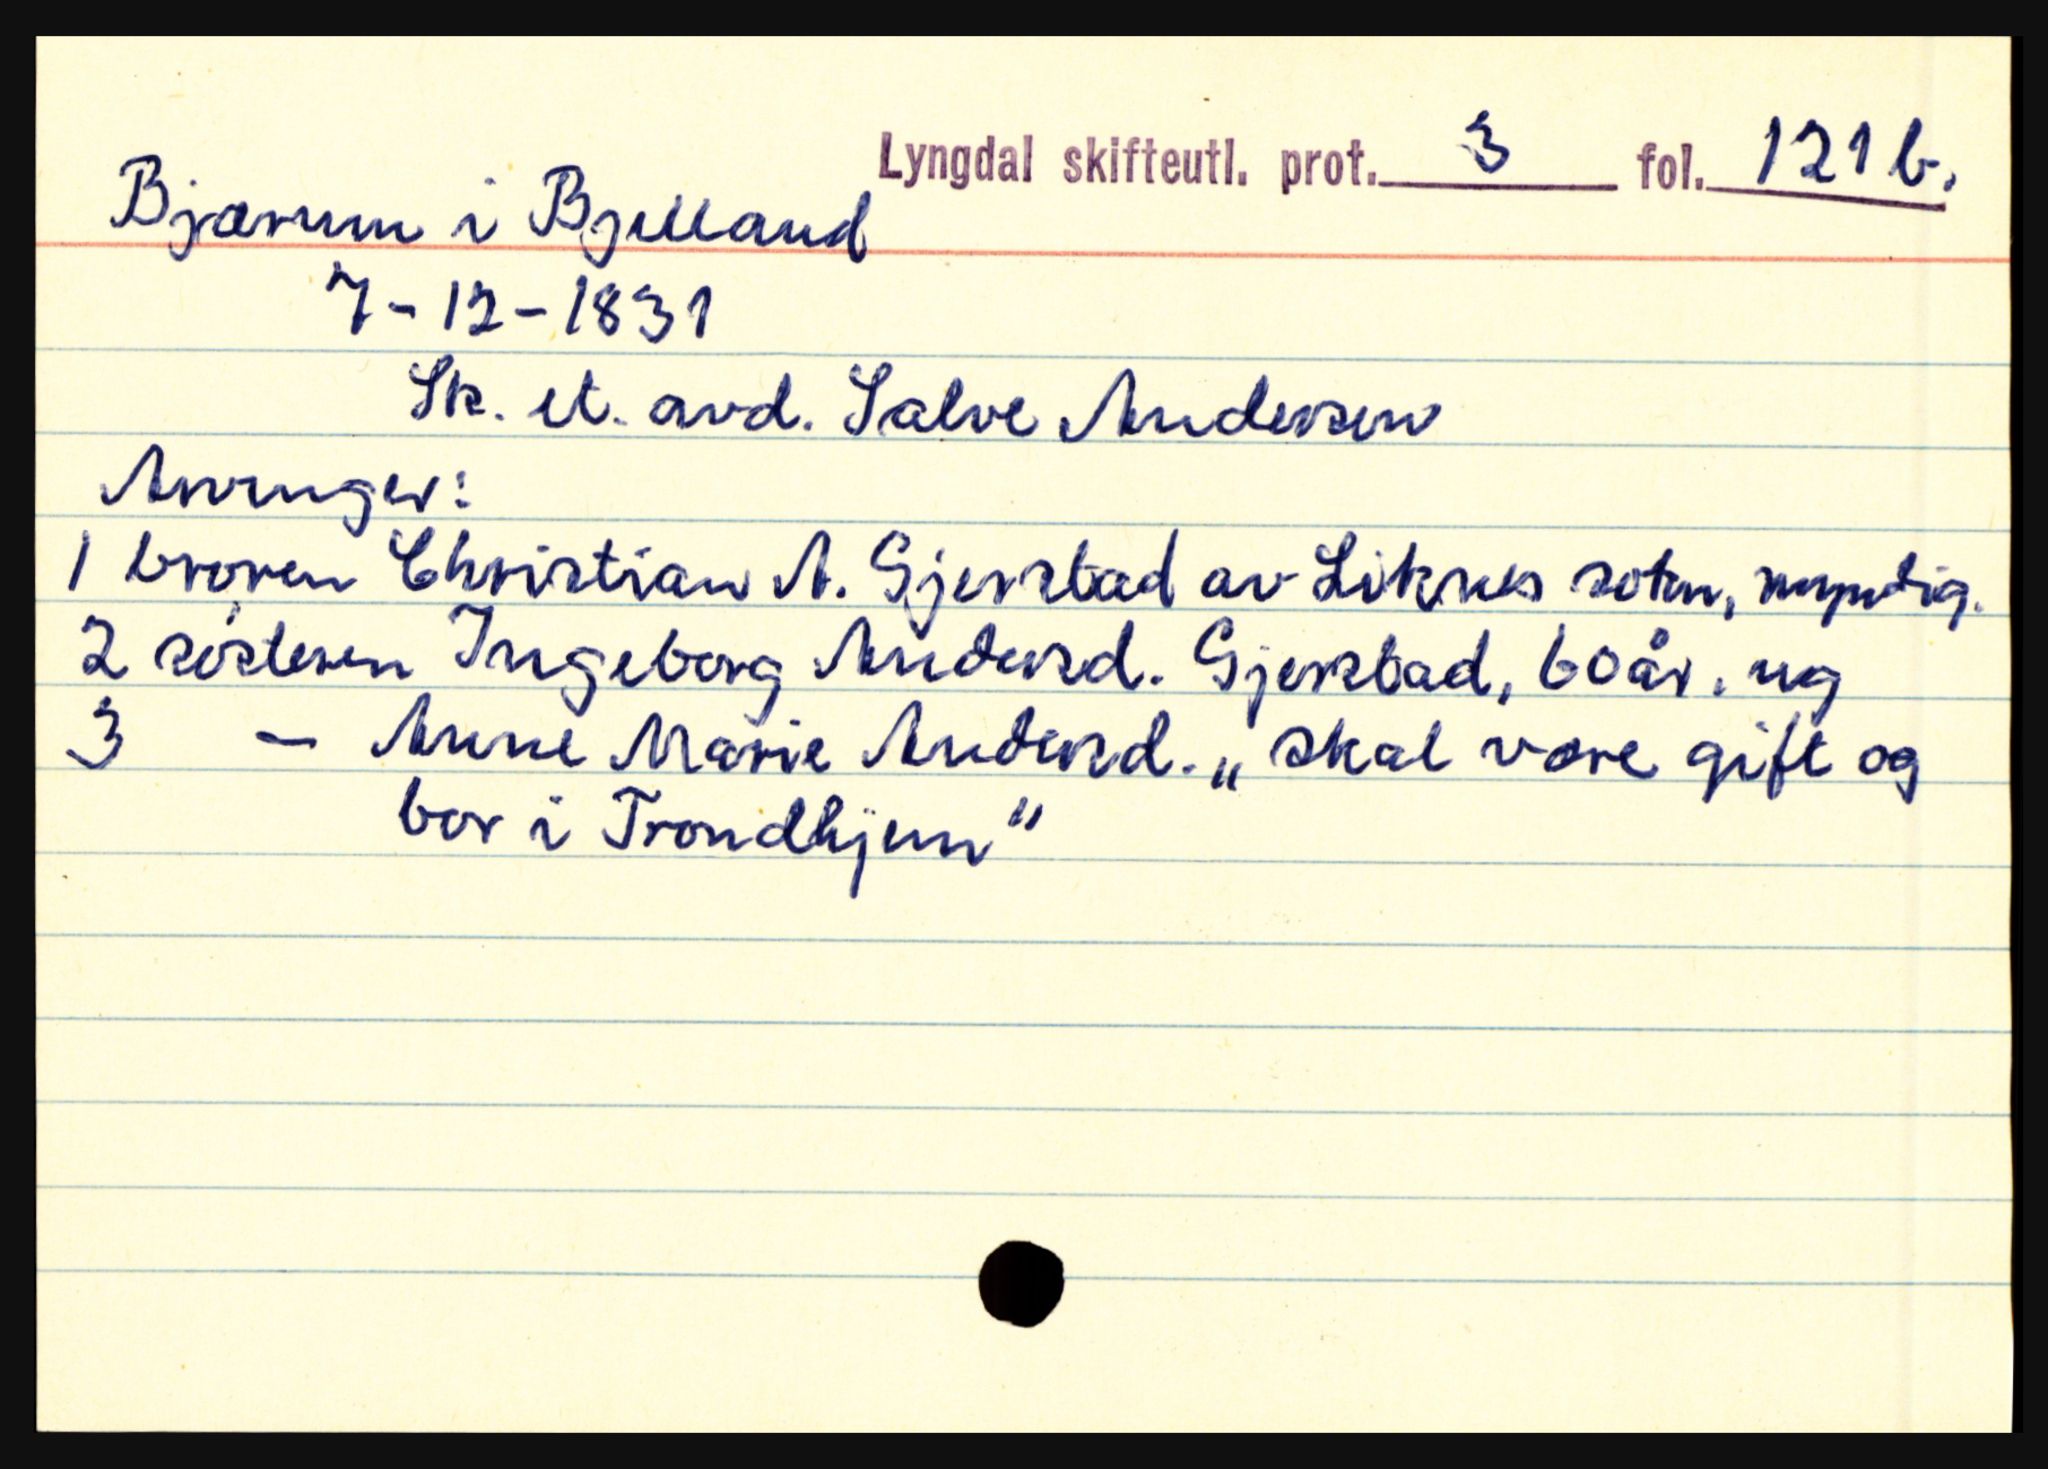 Lyngdal skifteutl. prot. 3 fol. 121 b.
Bjærum i Bjelland
7-12-1831
Sk. et. avd. Salve Andersen
Arvinger:
1 broren Christian A. Gjerstad av Liknes sokn, myndig.
2 søsteren Ingeborg Andersd. Gjerstad, 60 år. ug
3 — Anne Marie Andersd. „skal være gift og
bor i Trondhjem"